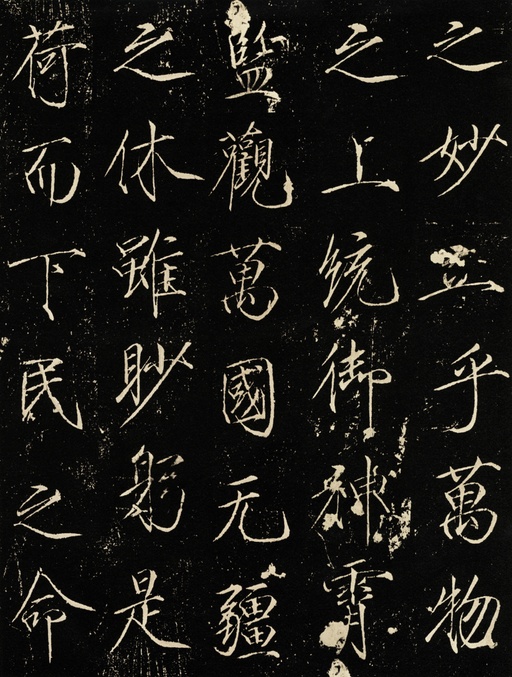 之妙立乎萬物
之上統御神霄
監觀萬國无疆
之休雖眇躬是
荷而下民之命